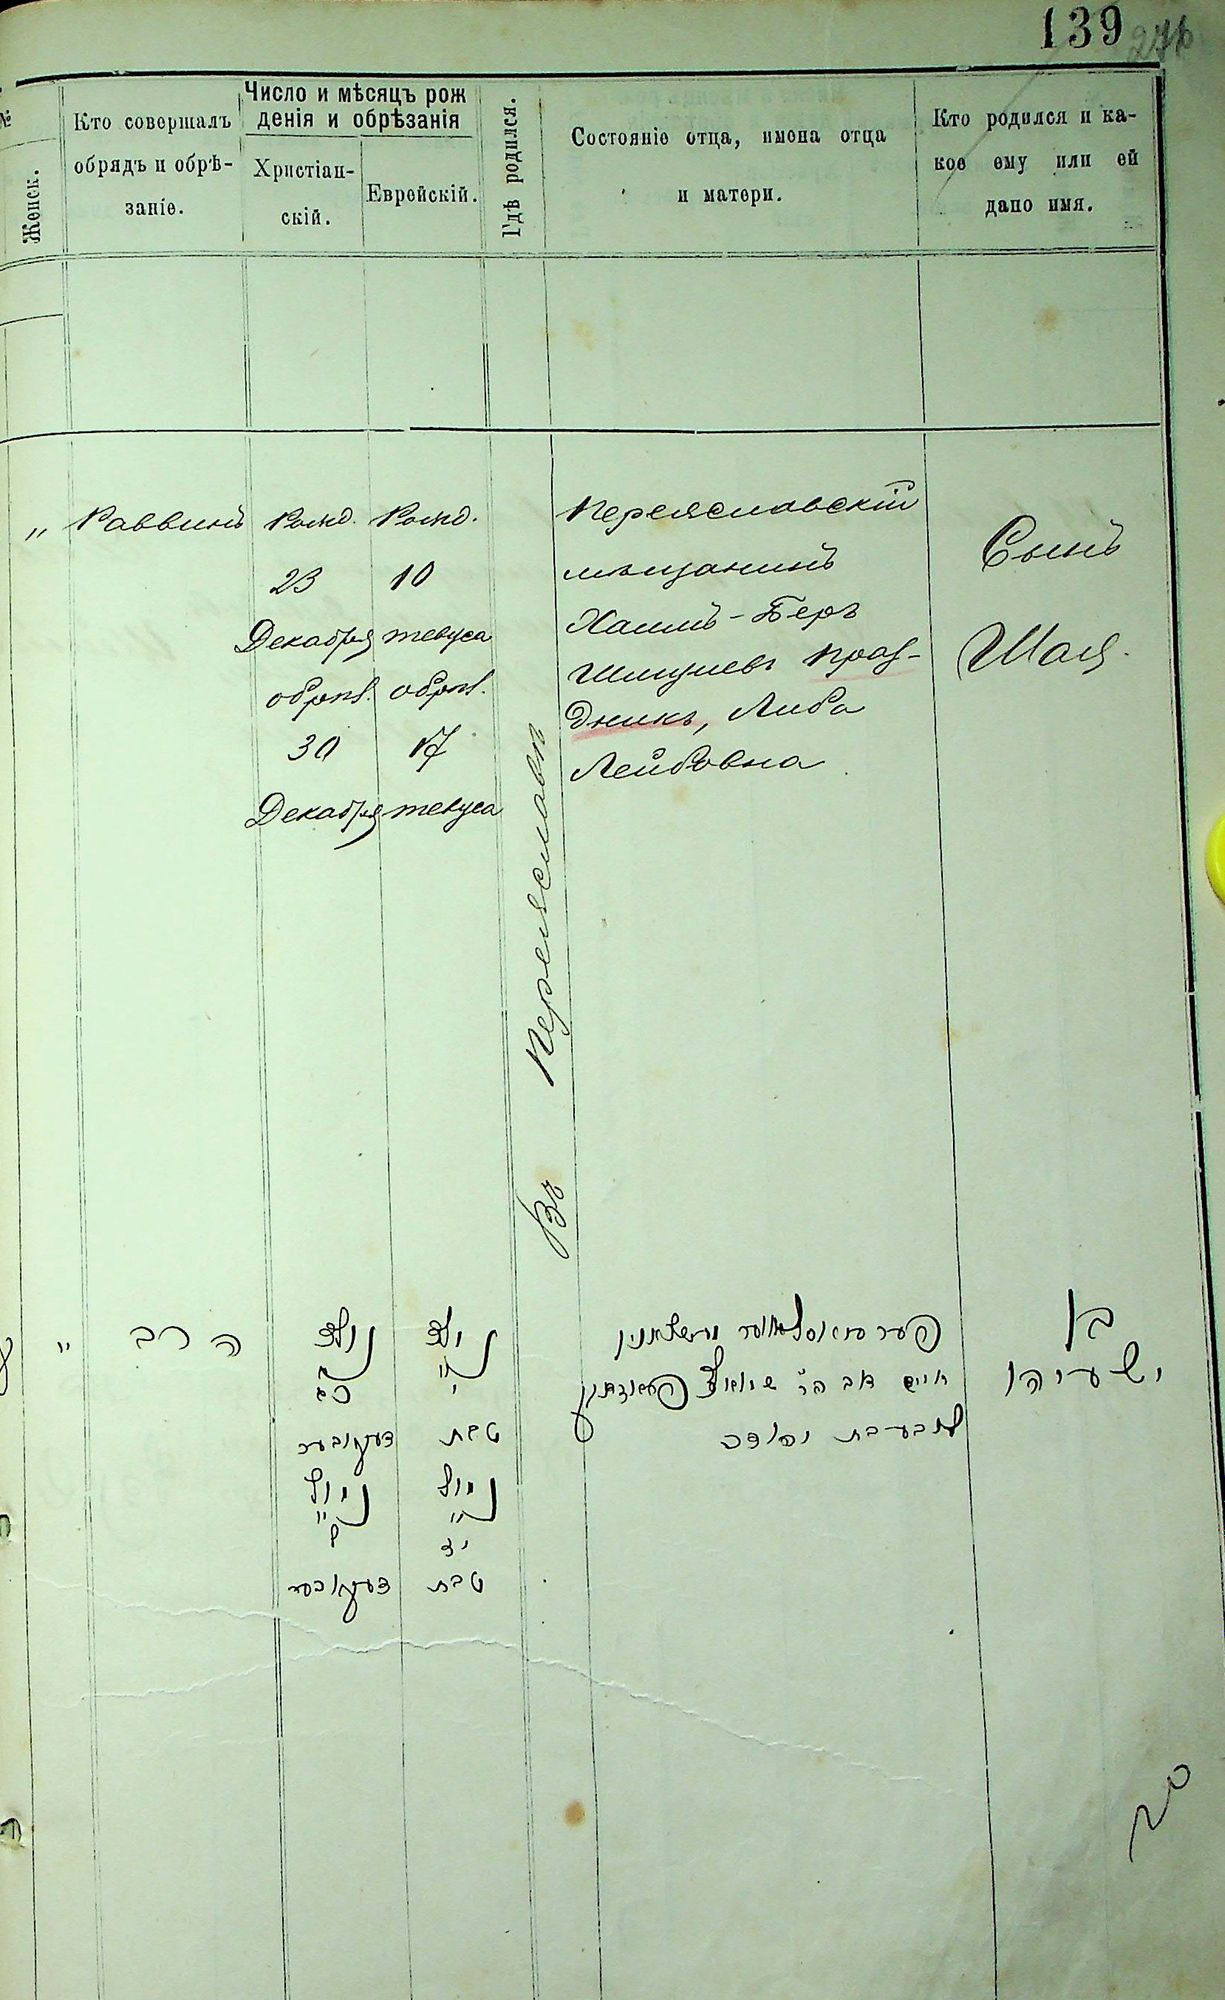 139
№
Женск.
Кто совершалъ
обрядъ и обрѣ-
заніе.
Число и мѣсяцъ рож
денія и обрѣзанія
Христіан-
скій.
Еврейскій.
Гдѣ родился.
Состояніе отца, имена отца
и матери.
Кто родился и ка-
кое ему или ей
дано имя.
" Раввинъ
Рожд.
23
Декабря
обрѣз.
30
Декабря
Рожд.
10
тевуса
обрѣз.
17
тевуса
Въ Переяславѣ
Переяславскій
мѣщанинъ
Хаимъ-Беръ
праз-
дникъ, Либа
Лейбовна
Сынъ
Шая.
" הרב
נולד
כג
דעקאבער
נימול
ל
דעקאבער
נולד
י
טבת
נימול
טבת
חיים דוב
בן
ישעיהו
20